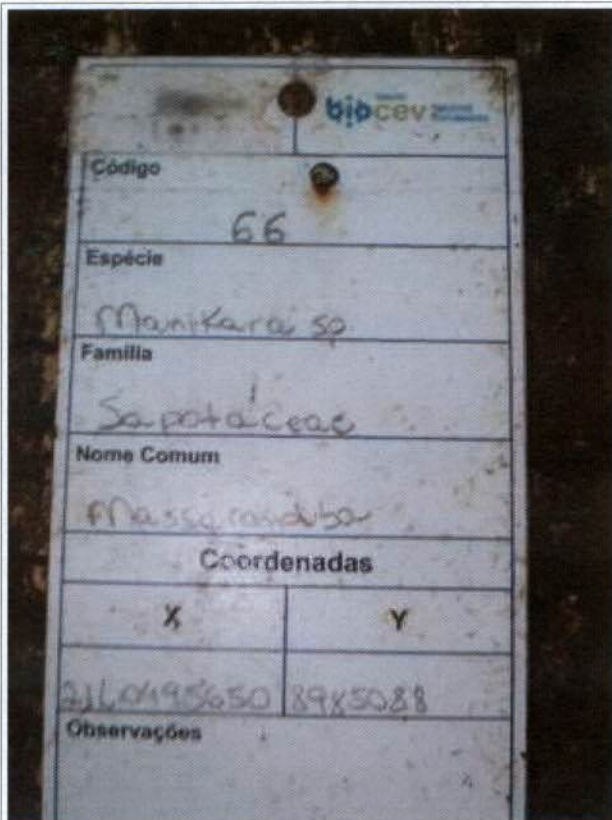 biocev
Código
66
Espécie
Manikara sp
Família
Sapotáceae
Nome Comum
Massaranduba
Coordenadas
X Y
21L0495650 8985088
Observações